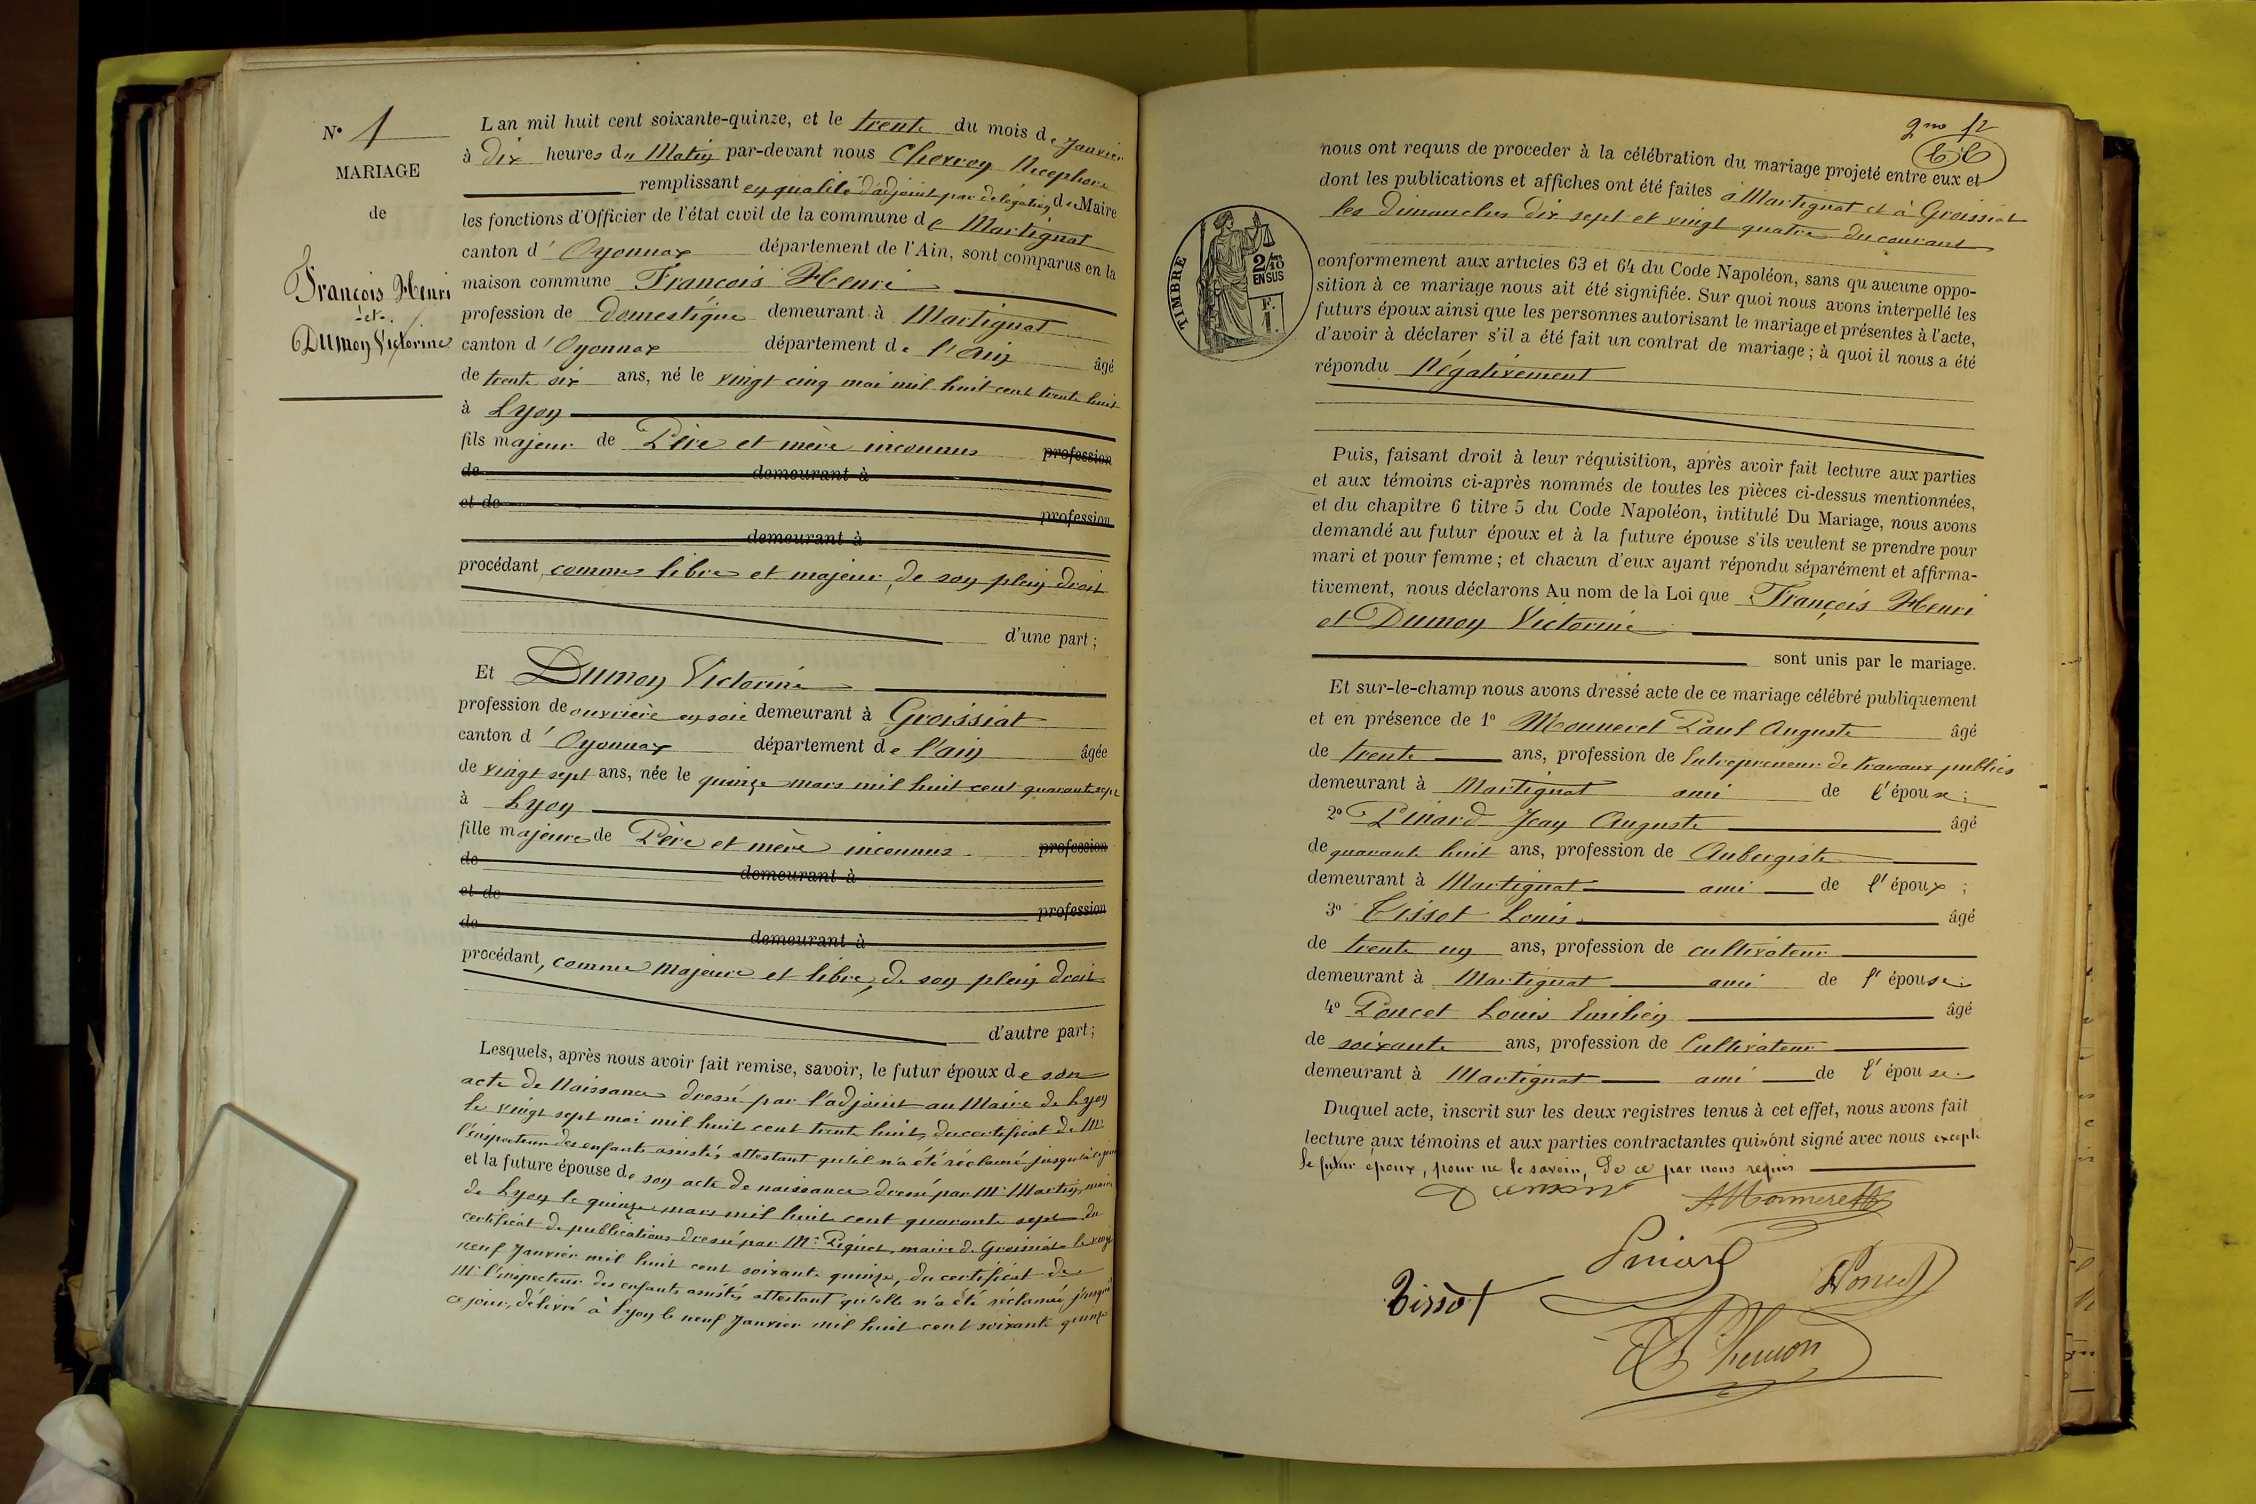 N° 1
MARIAGE
de
François Henri
et
Dumon Victorine
Lan mil huit cent soixante-quinze, et le trente du mois de Janvier
à dix heures du Matin par-devant nous Chevron Nicephore
remplissant en qualité d'adjoint par délégation du Maire
les fonctions d'Officier de l'état civil de la commune de Martignat
canton d' Oyonnax département de l'Ain, sont comparus en la
maison commune François Henri
profession de domestique demeurant à Martignat
canton d' Oyonnax département de l'ain âgé
de trente six ans, né le vingt cinq mai mil huit cent trente huit
à Lyon
fils majeur de Père et mère inconnus profession
de demeurant à
et de profession
demeurant à
procédant comme libre et majeur, de son plein droit
d'une part ;
Et Dumon Victorine
profession de ouvrière en soie demeurant à Groissiat
canton d' Oyonnax département de l'ain âgée
de vingt sept ans, née le quinze mars mil huit cent quarante sept
à Lyon
fille majeure de Père et mère inconnus profession
de demeurant à
et de profession
de demeurant à
procédant, comme majeure et libre, de son plein droit
d'autre part ;
Lesquels, après nous avoir fait remise, savoir, le futur époux de son
acte de Naissance dressé par l'adjoint au Maire de Lyon
le vingt sept mai mil huit cent trente huit, du certificat de Mr
l'inspecteur des enfants assistés attestant qu'il n'a été réclamé jusqu'à ce jour
et la future épouse de son acte de naissance dressé par Mr Martin, maire
de Lyon le quinze mars mil huit cent quarante sept, du
certificat de publications dressé par Mr Piquet, maire de Groissiat le vingt
neuf Janvier mil huit cent soixante quinze, du certificat de
Mr l'inspecteur des enfants assistés attestant qu'elle n'a été réclamée jusqu'à
ce jour, délivré à Lyon le neuf Janvier mil huit cent soixante quinze
12
nous ont requis de proceder à la célébration du mariage projeté entre eux et
dont les publications et affiches ont été faites à Martignat et à Groissiat
les dimanches dix sept et vingt quatre du courant
TIMBRE
2/10
EN SUS
F.
1.
conformement aux articles 63 et 64 du Code Napoléon, sans qu aucune oppo-
sition à ce mariage nous ait été signifiée. Sur quoi nous avons interpellé les
futurs époux ainsi que les personnes autorisant le mariage et présentes à l'acte,
d'avoir à déclarer s'il a été fait un contrat de mariage ; à quoi il nous a été
répondu Négativement
Puis, faisant droit à leur réquisition, après avoir fait lecture aux parties
et aux témoins ci-après nommés de toutes les pièces ci-dessus mentionnées,
et du chapitre 6 titre 5 du Code Napoléon, intitulé Du Mariage, nous avons
demandé au futur époux et à la future épouse s'ils veulent se prendre pour
mari et pour femme ; et chacun d'eux ayant répondu séparément et affirma-
tivement, nous déclarons Au nom de la Loi que François Henri
et Dumon Victorine
sont unis par le mariage.
Et sur-le-champ nous avons dressé acte de ce mariage célébré publiquement
et en présence de 1° Monneret Paul Auguste âgé
de trente ans, profession de Entrepreneur de travaux publics
demeurant à Martignat ami de l'épouse ;
2° Pinard Jean Auguste âgé
de quarante huit ans, profession de Aubergiste
demeurant à Martignat ami de l'époux ;
3° Tissot Louis âgé
de trente un ans, profession de cultivateur
demeurant à Martignat ami de l'épouse ;
4° Poncet Louis Emilien âgé
de soixante ans, profession de Cultivateur
demeurant à Martignat ami de l'épouse
Duquel acte, inscrit sur les deux registres tenus à cet effet, nous avons fait
lecture aux témoins et aux parties contractantes qui ont signé avec nous excepté
le futur époux, pour ne le savoir, de ce par nous requis
Monneret
Pinard
Tissot
Poncet